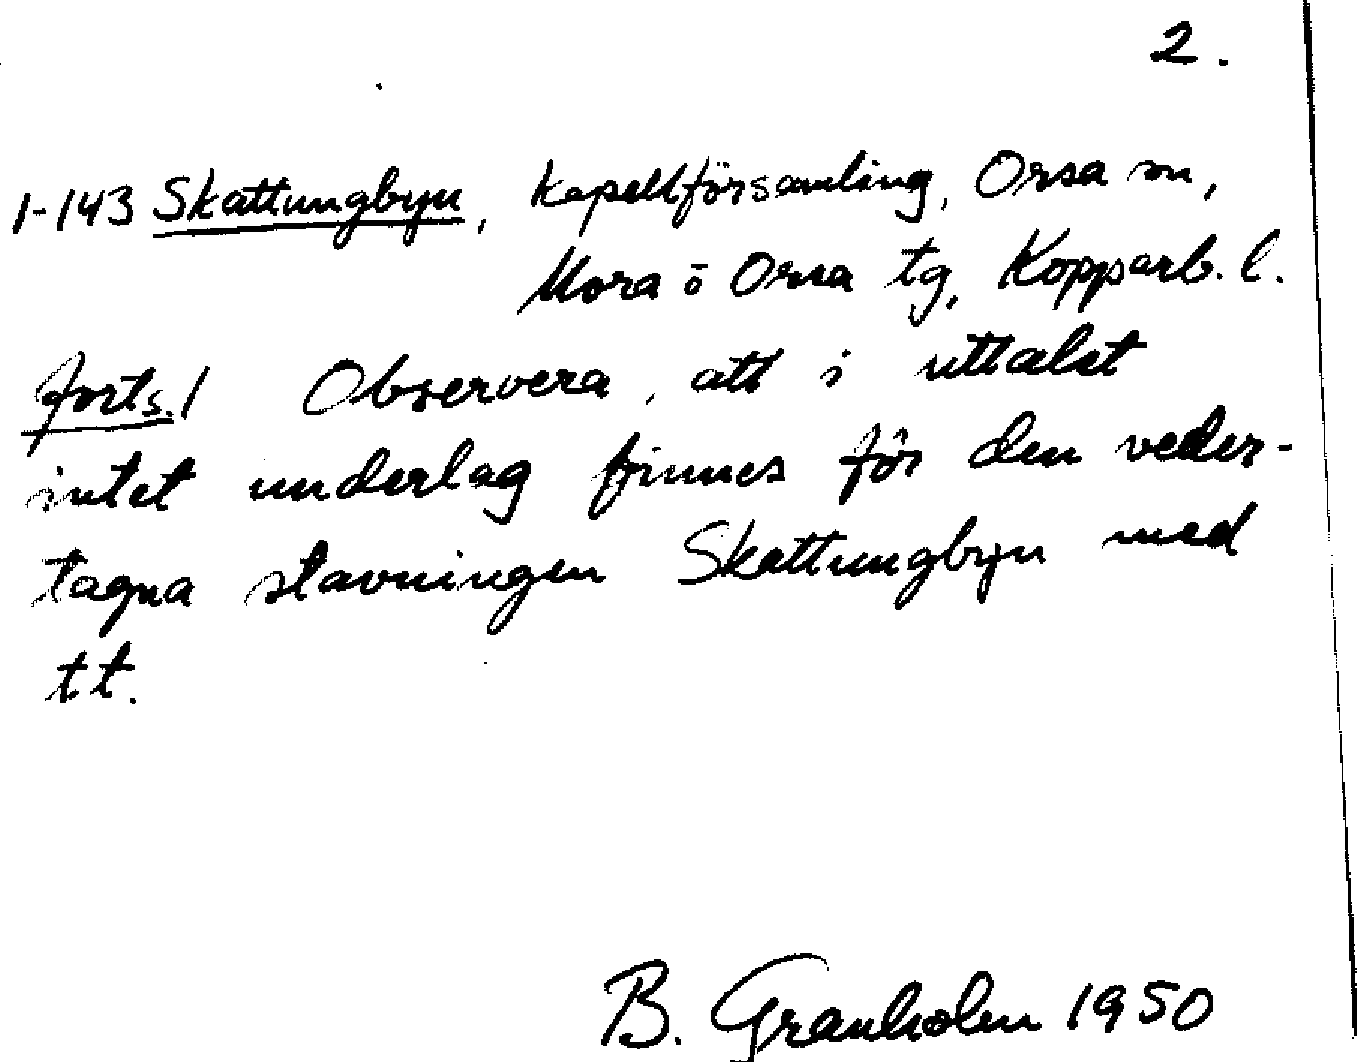 2.
1-143 Skattungbyn, Kapellförsamling, Orsa sn,
Mora o Orsa tg, Kopparb. l.
forts./ Observera, att i uttalet
intet underlag finnes för den veder-
tagna stavningen Skattungbyn med
tt.
B. Granholm 1950